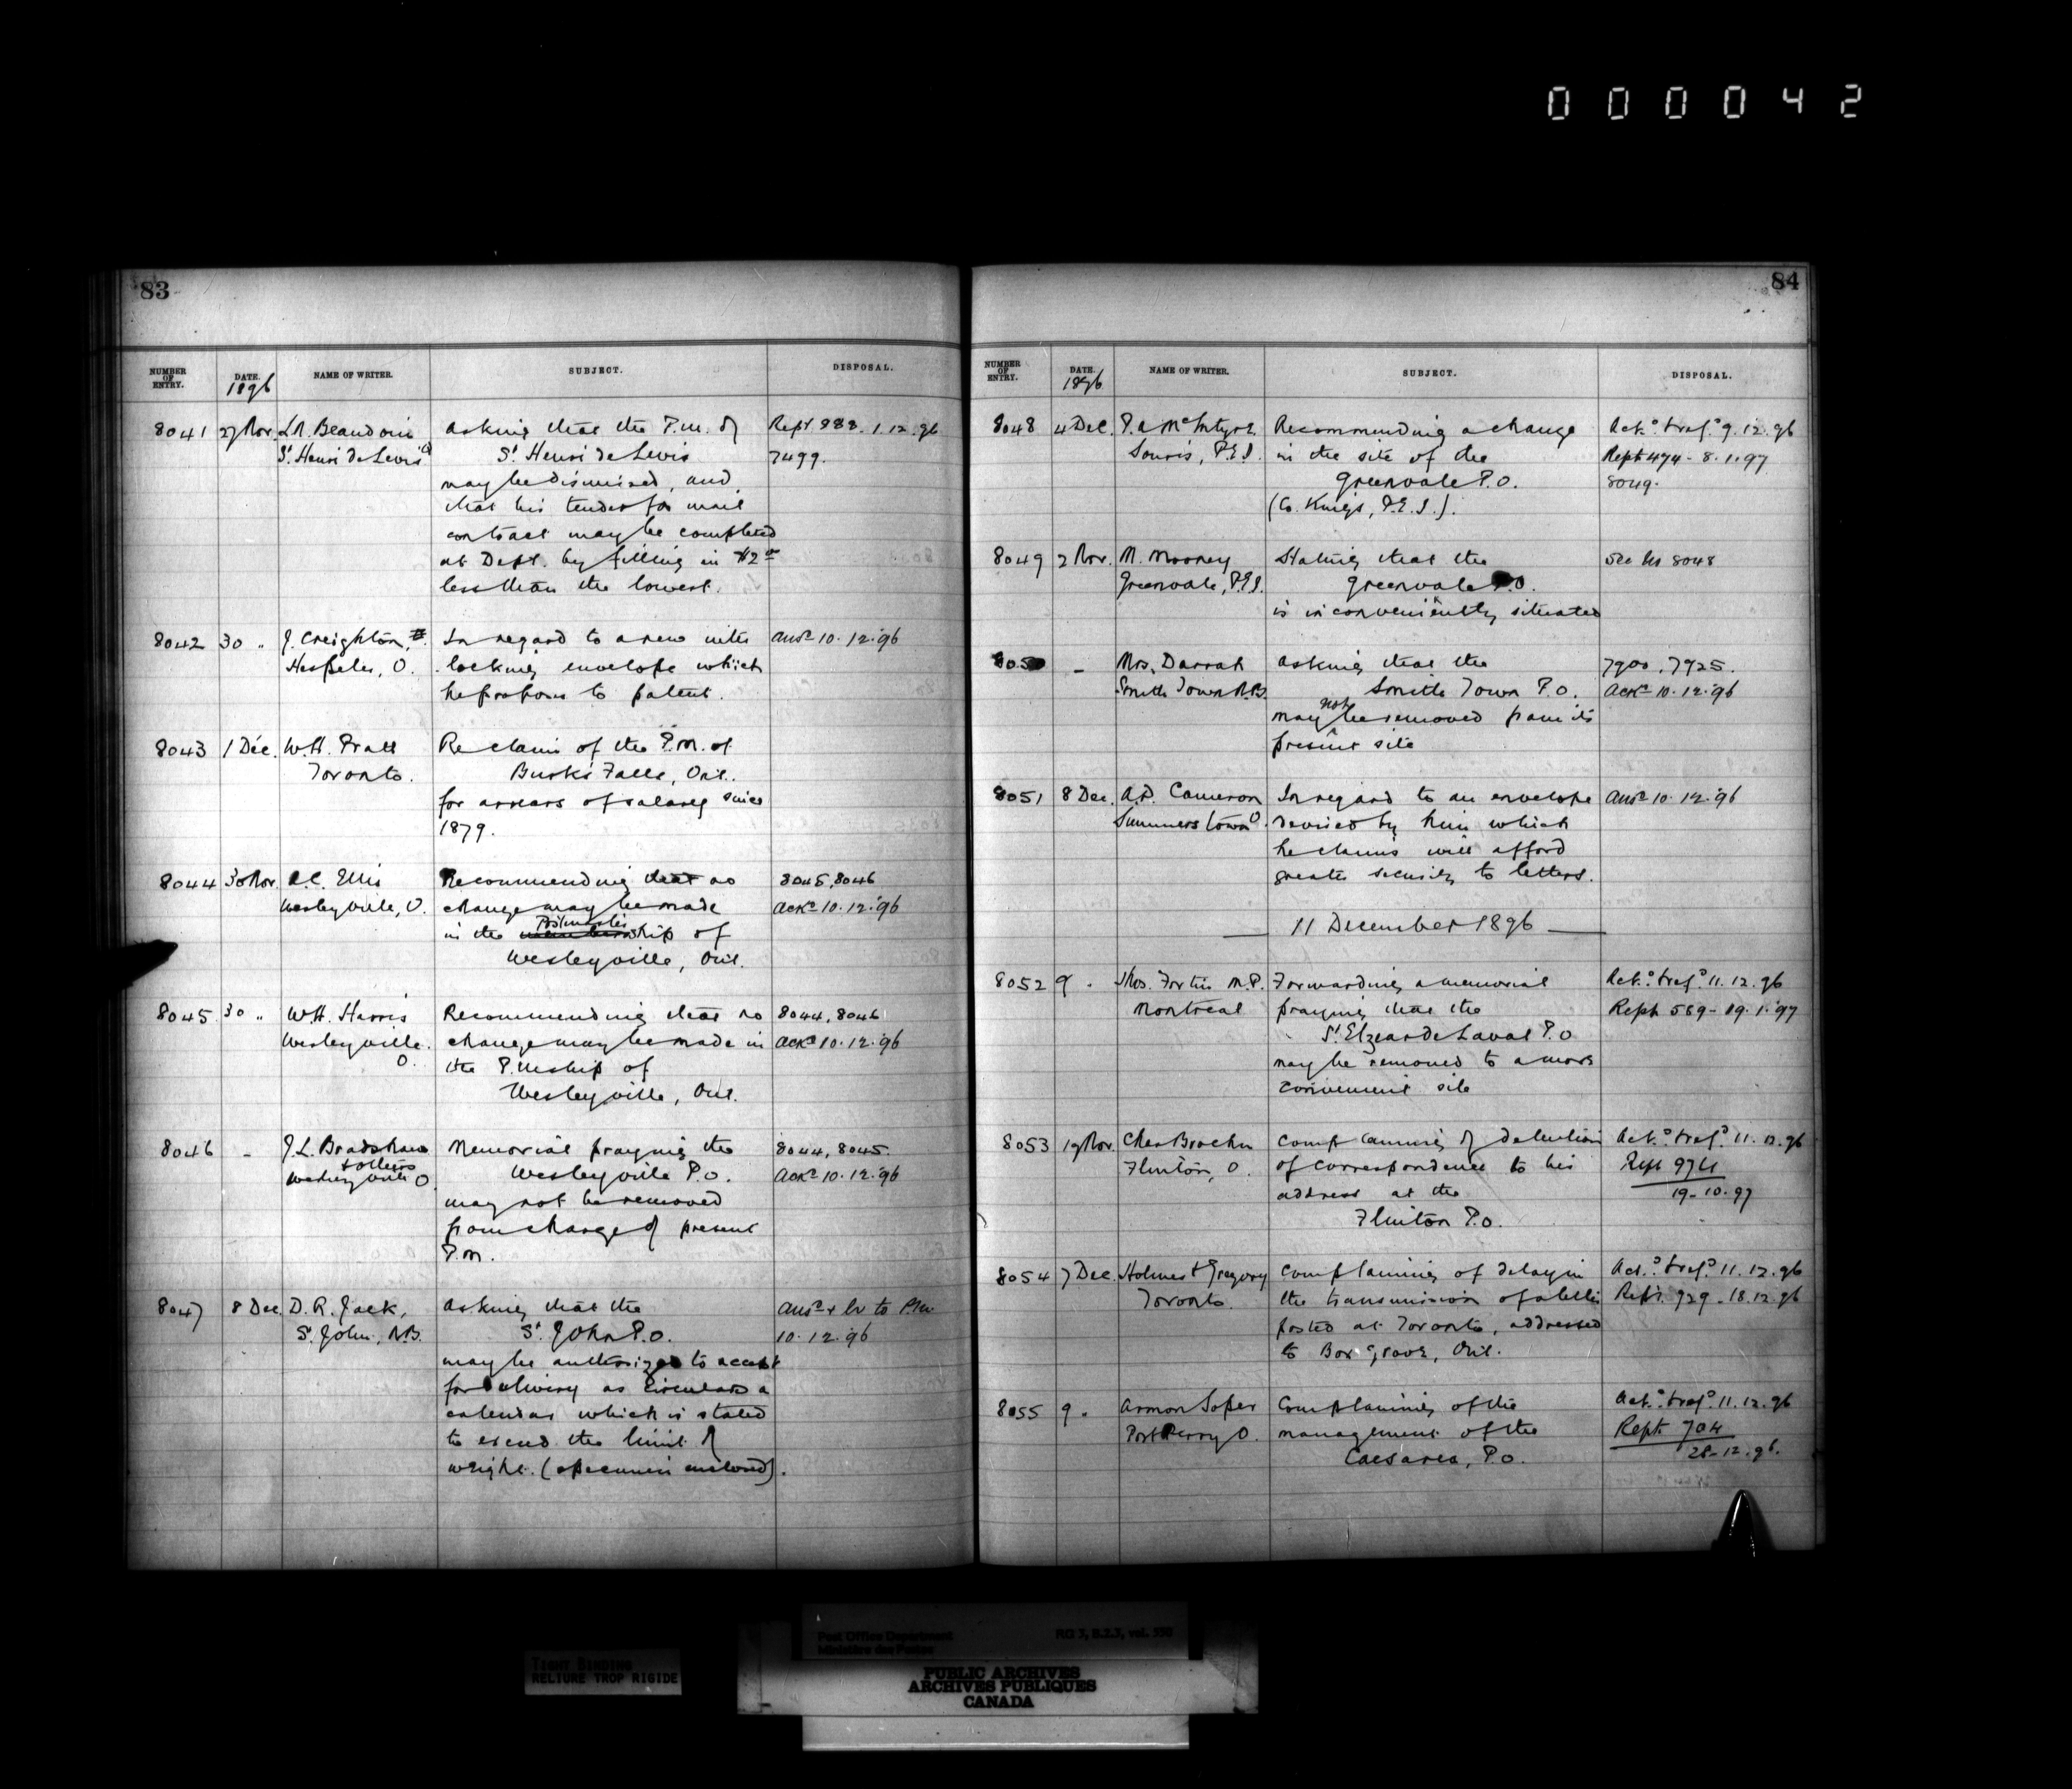 000042
83
NUMBER OF ENTRY. DATE. 1896 NAME OF WRITER. SUBJECT. DISPOSAL.
8041 27 Nov. L.N. Beaudoin Asking that the P.M. of Rept 888. 1.12.96
St. Henri de Levis Q St. Henri de Levis 7499.
may be dismissed, and
that his tender for mail
contract may be completed
at Dept. by filling in $2
less than the lowest.
8042 30 " J. Creighton, In regard to a new inter Ansd 10.12.96
Hespeler, O. locking envelope which
he proposes to patent.
8043 1 Dec. W.H. Pratt Re claim of the P.M. of
Toronto. Burks Falls, Ont.
for arrears of salary since
1879.
8044 30 Nov. A.C. Ellis Recommending that no 8045, 8046
Wesleyville, O. change may be made Ackd 10.12.96
in the Postmastership of
Wesleyville, Ont.
8045 30 " W.H. Harris Recommending that no 8044, 8046
Wesleyville. change may be made in Ackd 10.12.96
O. the P.Mship of
Wesleyville, Ont.
8046 - J.L. Bradshaw Memorial praying the 8044, 8045.
& others Wesleyville P.O. Ackd 10.12.96
Wesleyville O may not be removed
from charge of present
P.M.
8047 8 Dec. D.R. Jack, Asking that the Ansd & lr to P.M
St. John, N.B. St. John P.O. 10.12.96
may be authorized to accept
for delivery as circulars a
calendar which is stated
to exceed the limit of
weight. (specimen enclosed).
84
NUMBER OF ENTRY. DATE. 1896 NAME OF WRITER. SUBJECT. DISPOSAL.
8048 4 Dec. P.A. McIntyre Recommending a change Ack.d & ref.d 9.12.96
Souris, P.E.I. in the site of the Rept 474 - 8.1.97
Greenvale P.O. 8049.
(Co. Kings, P.E.I.).
8049 2 Nov. M. Mooney Stating that the See No 8048
Greenvale, P.E.I. Greenvale P.O.
is inconveniently situated
8050 - Mrs. Darrah Asking that the 7900, 7925.
Smith Town N.B. Smith Town P.O. Ackd 10.12.96
may not be removed from its
present site
8051 8 Dec. A.D. Cameron In regard to an envelope Ansd 10.12.96
Summerstown O. devised by him which
he claims will afford
greater security to letters.
11 December 1896
8052 9 " Thos. Fortin M.P. Forwarding a memorial Ack.d & ref.d 11.12.96
Montreal praying that the Rept 589 - 19.1.97
St. Elzear de Laval P.O
may be removed to a more
convenient site
8053 19 Nov. Chas Complaining of detention Ack.d & ref.d 11.12.96
Flinton, O. of correspondence to his Rept 974
address at the 19-10-97
Flinton P.O.
8054 7 Dec. Holmes & Gregory Complaining of delay in Ack.d & ref.d 11.12.96
Toronto the transmission of a letter Rept. 929 - 18.12.96
posted at Toronto, addressed
to Box Grove, Ont.
8055 9 " Armon Soper Complaining of the Ack.d & ref.d 11.12.96
Port Perry O. management of the Rept 704
Caesarea, P.O. 28-12-96.
TIGHT BINDING
RELIURE TROP RIGIDE
Post Office Department RG 3, B.2.3, vol. 550
Ministère des Postes
PUBLIC ARCHIVES
ARCHIVES PUBLIQUES
CANADA